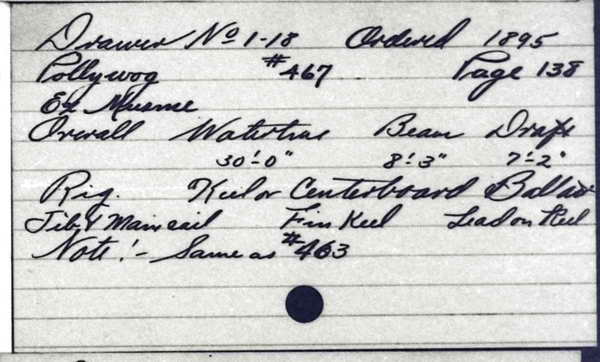 Drawer No 1-18 Ordered 1895
Pollywog #467 Page 138
Ex Musme
Overall Waterline Beam Draft
30'-0" 8'-3" 7'-2"
Rig. Keel or Centerboard Ballast
Jib & Mainsail Fin Keel Lead on Keel
Note:- Same as #463